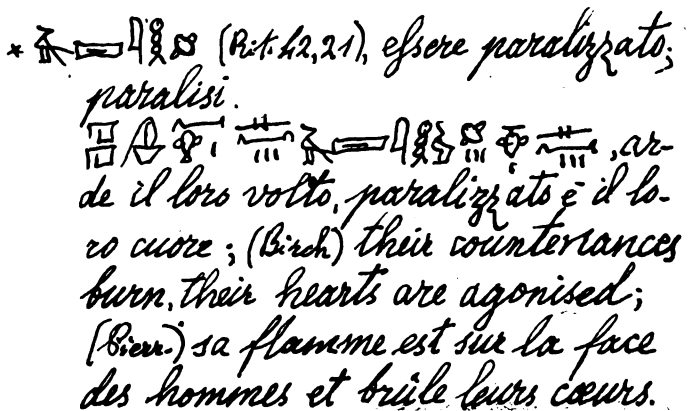 * (Rit. 42,21), essere paralizzato;
paralisi.
, ar-
de il loro volto, paralizzato è il lo-
ro cuore; (Birch) their countenances
burn, their hearts are agonised;
(Pierr.) sa flamme est sur la face
des hommes et brûle leurs cœurs.